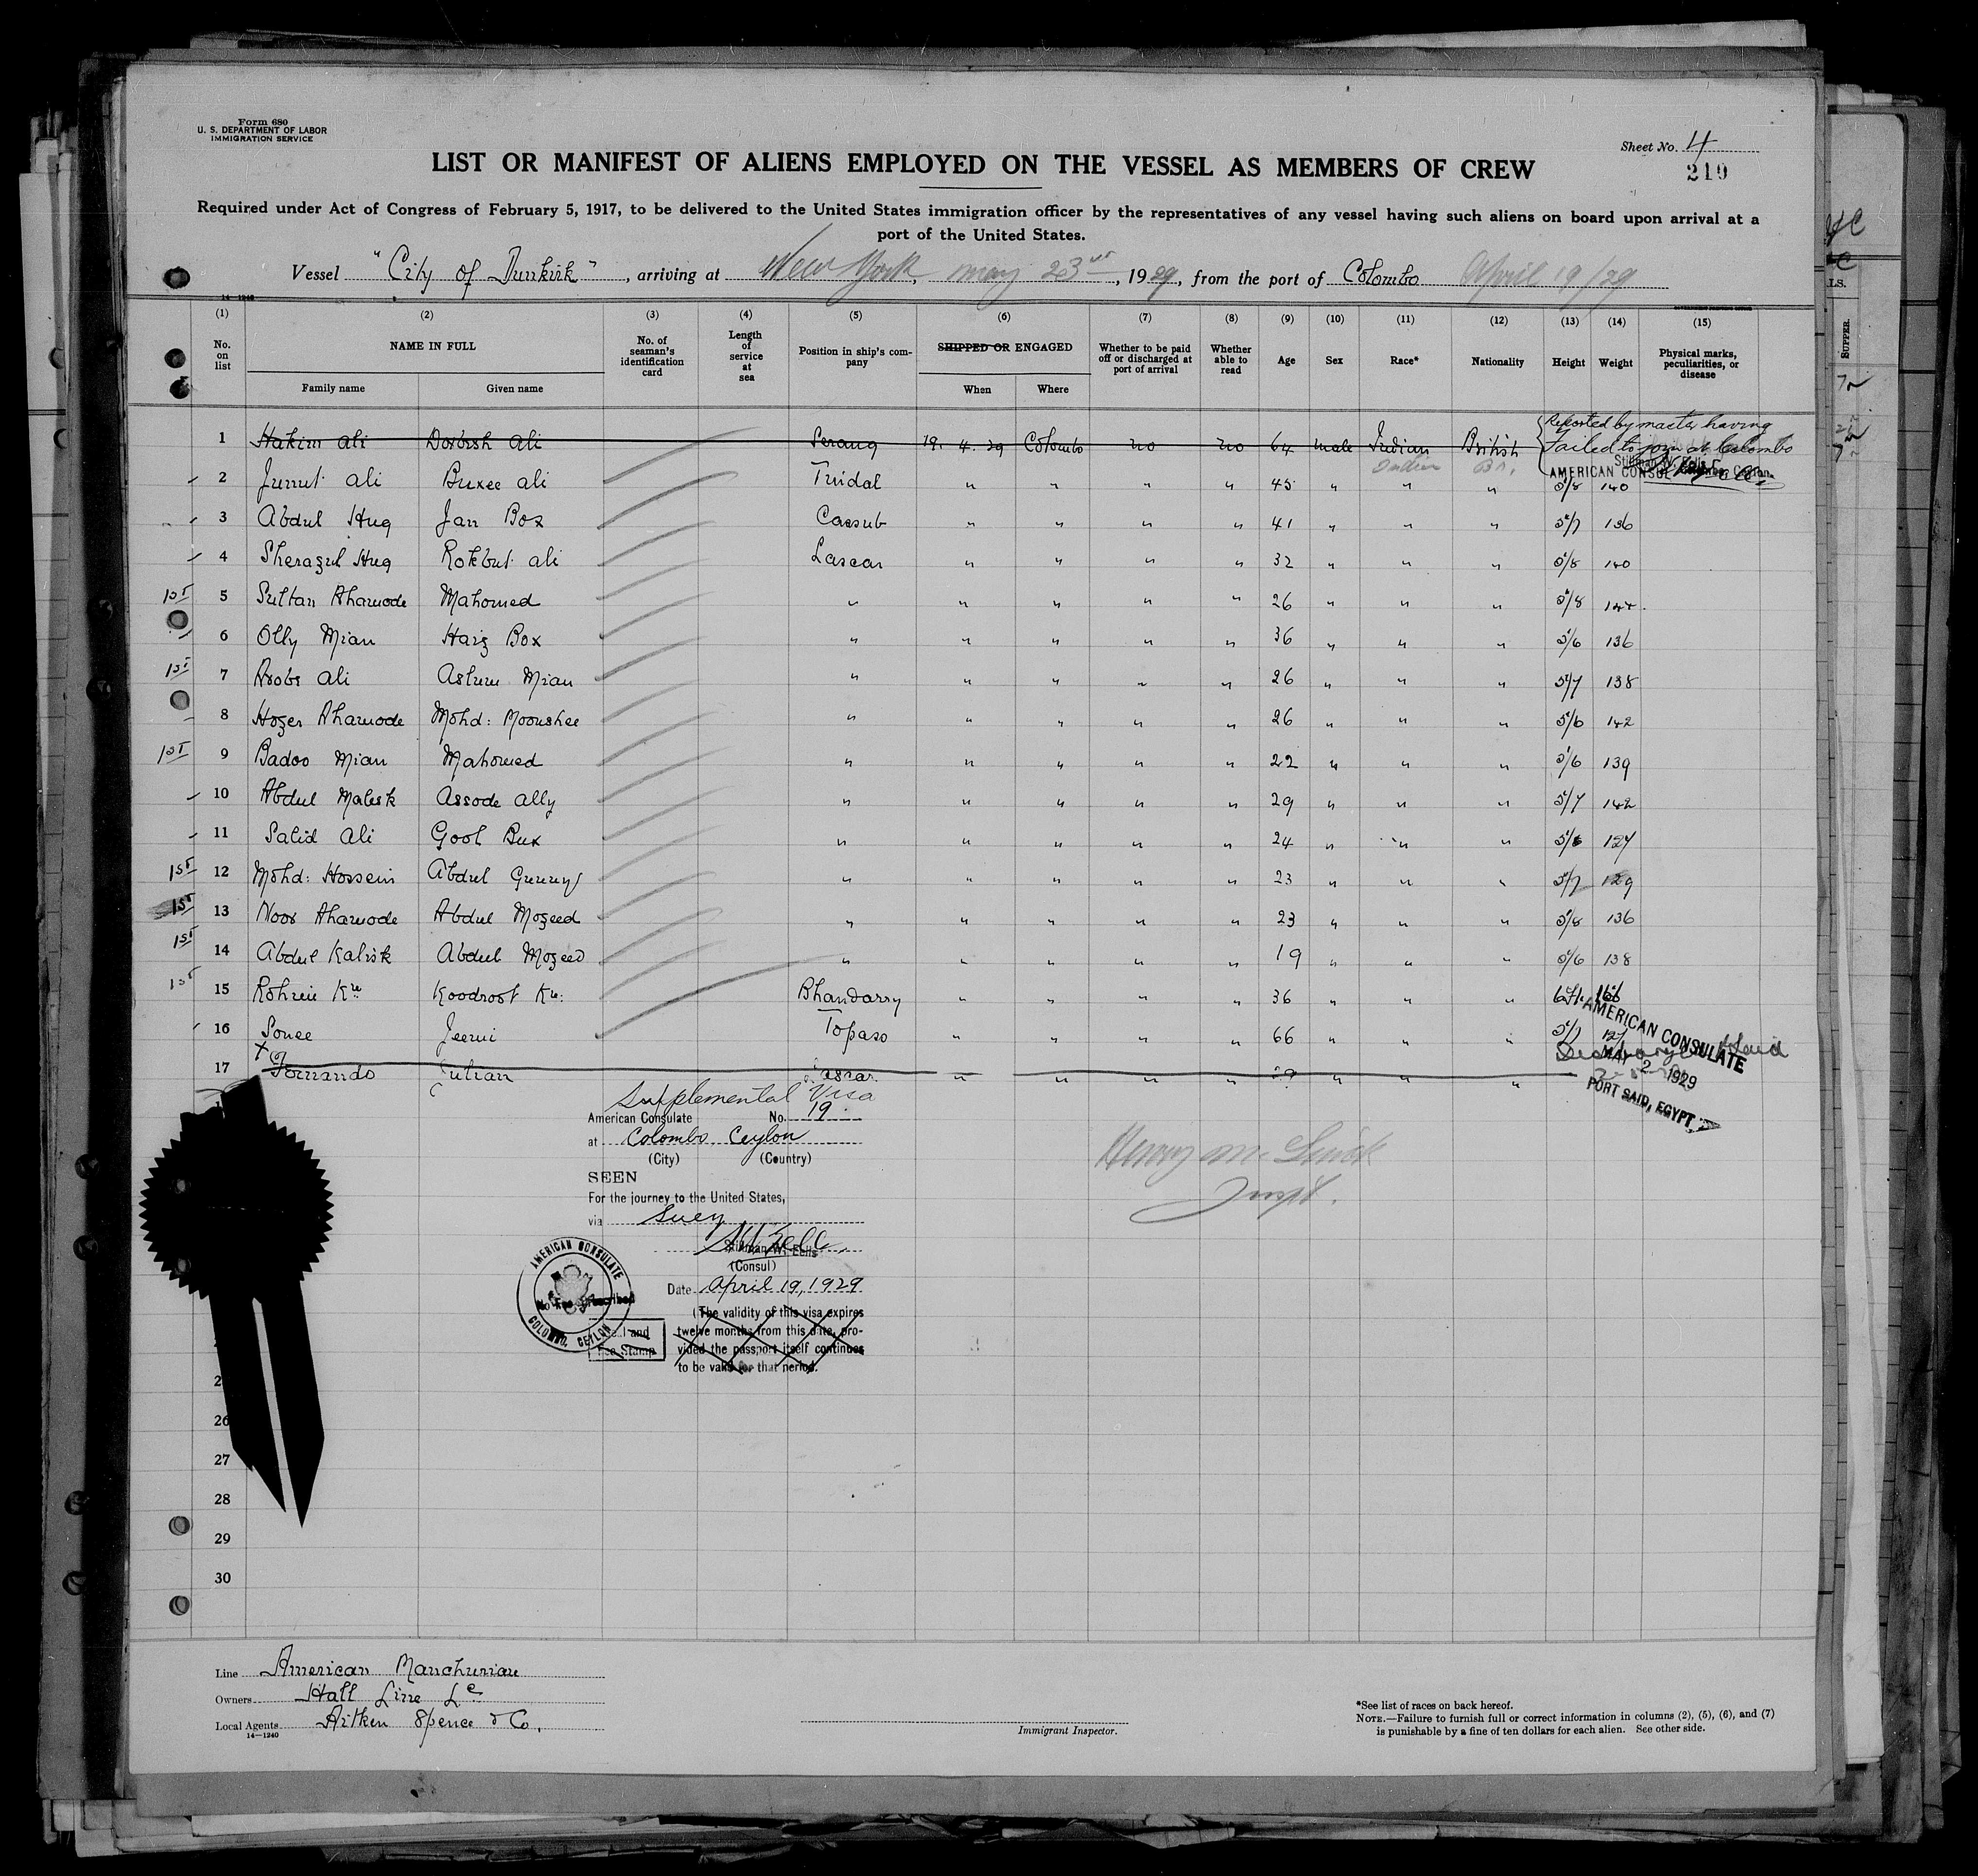 Form 680
U. S. DEPARTMENT OF LABOR
IMMIGRATION SERVICE
Sheet No. 4
219
LIST OR MANIFEST OF ALIENS EMPLOYED ON THE VESSEL AS MEMBERS OF CREW
Required under Act of Congress of February 5, 1917, to be delivered to the United States immigration officer by the representatives of any vessel having such aliens on board upon arrival at a
port of the United States.
Vessel "City of Dunkirk", arriving at New York, may 23rd, 1929, from the port of Colombo April 19/29
14-1240
(1) (2) (3) (4) (5) (6) (7) (8) (9) (10) (11) (12) (13) (14) (15)
No. on list NAME IN FULL No. of seaman's identification card Length of service at sea Position in ship's company SHIPPED OR ENGAGED Whether to be paid off or discharged at port of arrival Whether able to read Age Sex Race* Nationality Height Weight Physical marks, peculiarities, or disease
Family name Given name When Where
1 Hakim Ali Dorbesh Ali Serang 19. 4. 29 Colombo no no 64 male Indian British Reported by master having
Failed to join at Colombo
Indian Br. Stillman W. Eells
AMERICAN CONSUL
2 Junut Ali Buxee Ali Tindal " " " " 45 " " " 5/8 140
3 Abdul Huq Jan Box Cassub " " " " 41 " " " 5/7 136
4 Sherazul Huq Rokbut Ali Lascar " " " " 32 " " " 5/8 140
1st 5 Sultan Ahamode Mahomed " " " " " 26 " " " 5/8 144.
6 Olly Mian Haiz Box " " " " " 36 " " " 5/6 136
1st 7 Arobs Ali Aslum Mian " " " " " 26 " " " 5/7 138
8 Hozer Ahamode Mohd: Moonshee " " " " " 26 " " " 5/6 142
1st 9 Badoo Mian Mahomed " " " " " 22 " " " 5/6 139
10 Abdul Malek Assode Ally " " " " " 29 " " " 5/7 142
11 Salid Ali Gool Bux " " " " " 24 " " " 5/6 127
1st 12 Mohd: Hossein Abdul Gunny " " " " " 23 " " " 5/7 129
1st 13 Noor Ahamode Abdul Mozeed " " " " " 23 " " " 5/8 136
1st 14 Abdul Kalisk Abdul Mozeed " " " " " 19 " " " 5/6 138
1st 15 Kre Koodroot Kre: Bhandarry " " " " 36 " " " 6ft. 166
16 Sonee Jeevi Topaso " " " " 66 " " " 5/7 127
AMERICAN CONSULATE
MAY 2 1929
PORT SAID, EGYPT
17 Fernando Julian Lascar " " " " 29 " " "
Supplemental Visa
American Consulate No. 19
at Colombo Ceylon
(City) (Country)
SEEN
For the journey to the United States,
via Suez
Stillman W. Eells
(Consul)
Date April 19, 1929
(The validity of this visa expires
twelve months from this date, pro-
vided the passport itself continues
to be valid for that period.
AMERICAN CONSULATE
No Fee Prescribed
COLOMBO, CEYLON
Seal and
Fee Stamp
Henry M.
Inspt.
26
27
28
29
30
Line American Manchurian
Owners Hall Line Ld
Local Agents Aitken Spence & Co.
14-1240
Immigrant Inspector.
*See list of races on back hereof.
NOTE.—Failure to furnish full or correct information in columns (2), (5), (6), and (7)
is punishable by a fine of ten dollars for each alien. See other side.
SUPPER.